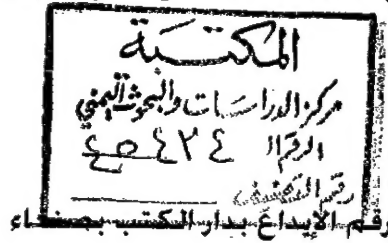 المكتبة
مركز الدراسات والبحوث اليمني
الرقم ٤٢٤
رقم التصنيف
رقم الإيداع بدار الكتب بصنعاء